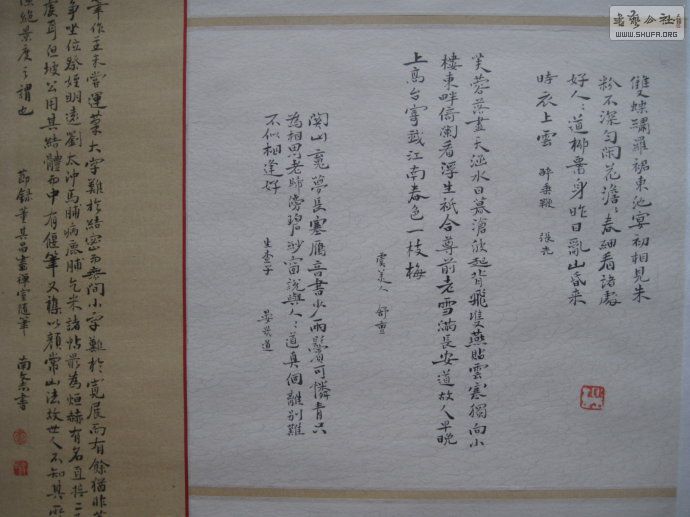 書藝公社
WWW.SHUFA.ORG
雙蝶繡羅裙東池宴初相見朱
粉不深匀閑花澹々春細看諸處
好人々道柳腰身昨日亂山昏來
時衣上雲 醉垂鞭 張先
芙蓉落盡天涵水日暮滄波起背飛雙燕貼雲寒獨向小
樓東畔倚闌看浮生衹合尊前老雪滿長安道故人早晚
上高台寄我江南春色一枝梅
虞美人 舒亶
關山魂夢長塞雁音書少兩鬢可憐青只
為相思老歸傍碧紗窗說與人々道真個離別難
不似相逢好
生查子 晏幾道
筆作主未嘗運筆大字難於結密而無間小字難於寬展而有餘猶非
爭坐位祭姪明遠劉太沖馬脯病鹿脯乞米諸帖最為烜赫有名直接二
虔耳但坡公用其結體而中有偃筆又雜以顏常山法故世人不知其所
絕景度之謂也
節錄董其昌畫禪室隨筆 南 書